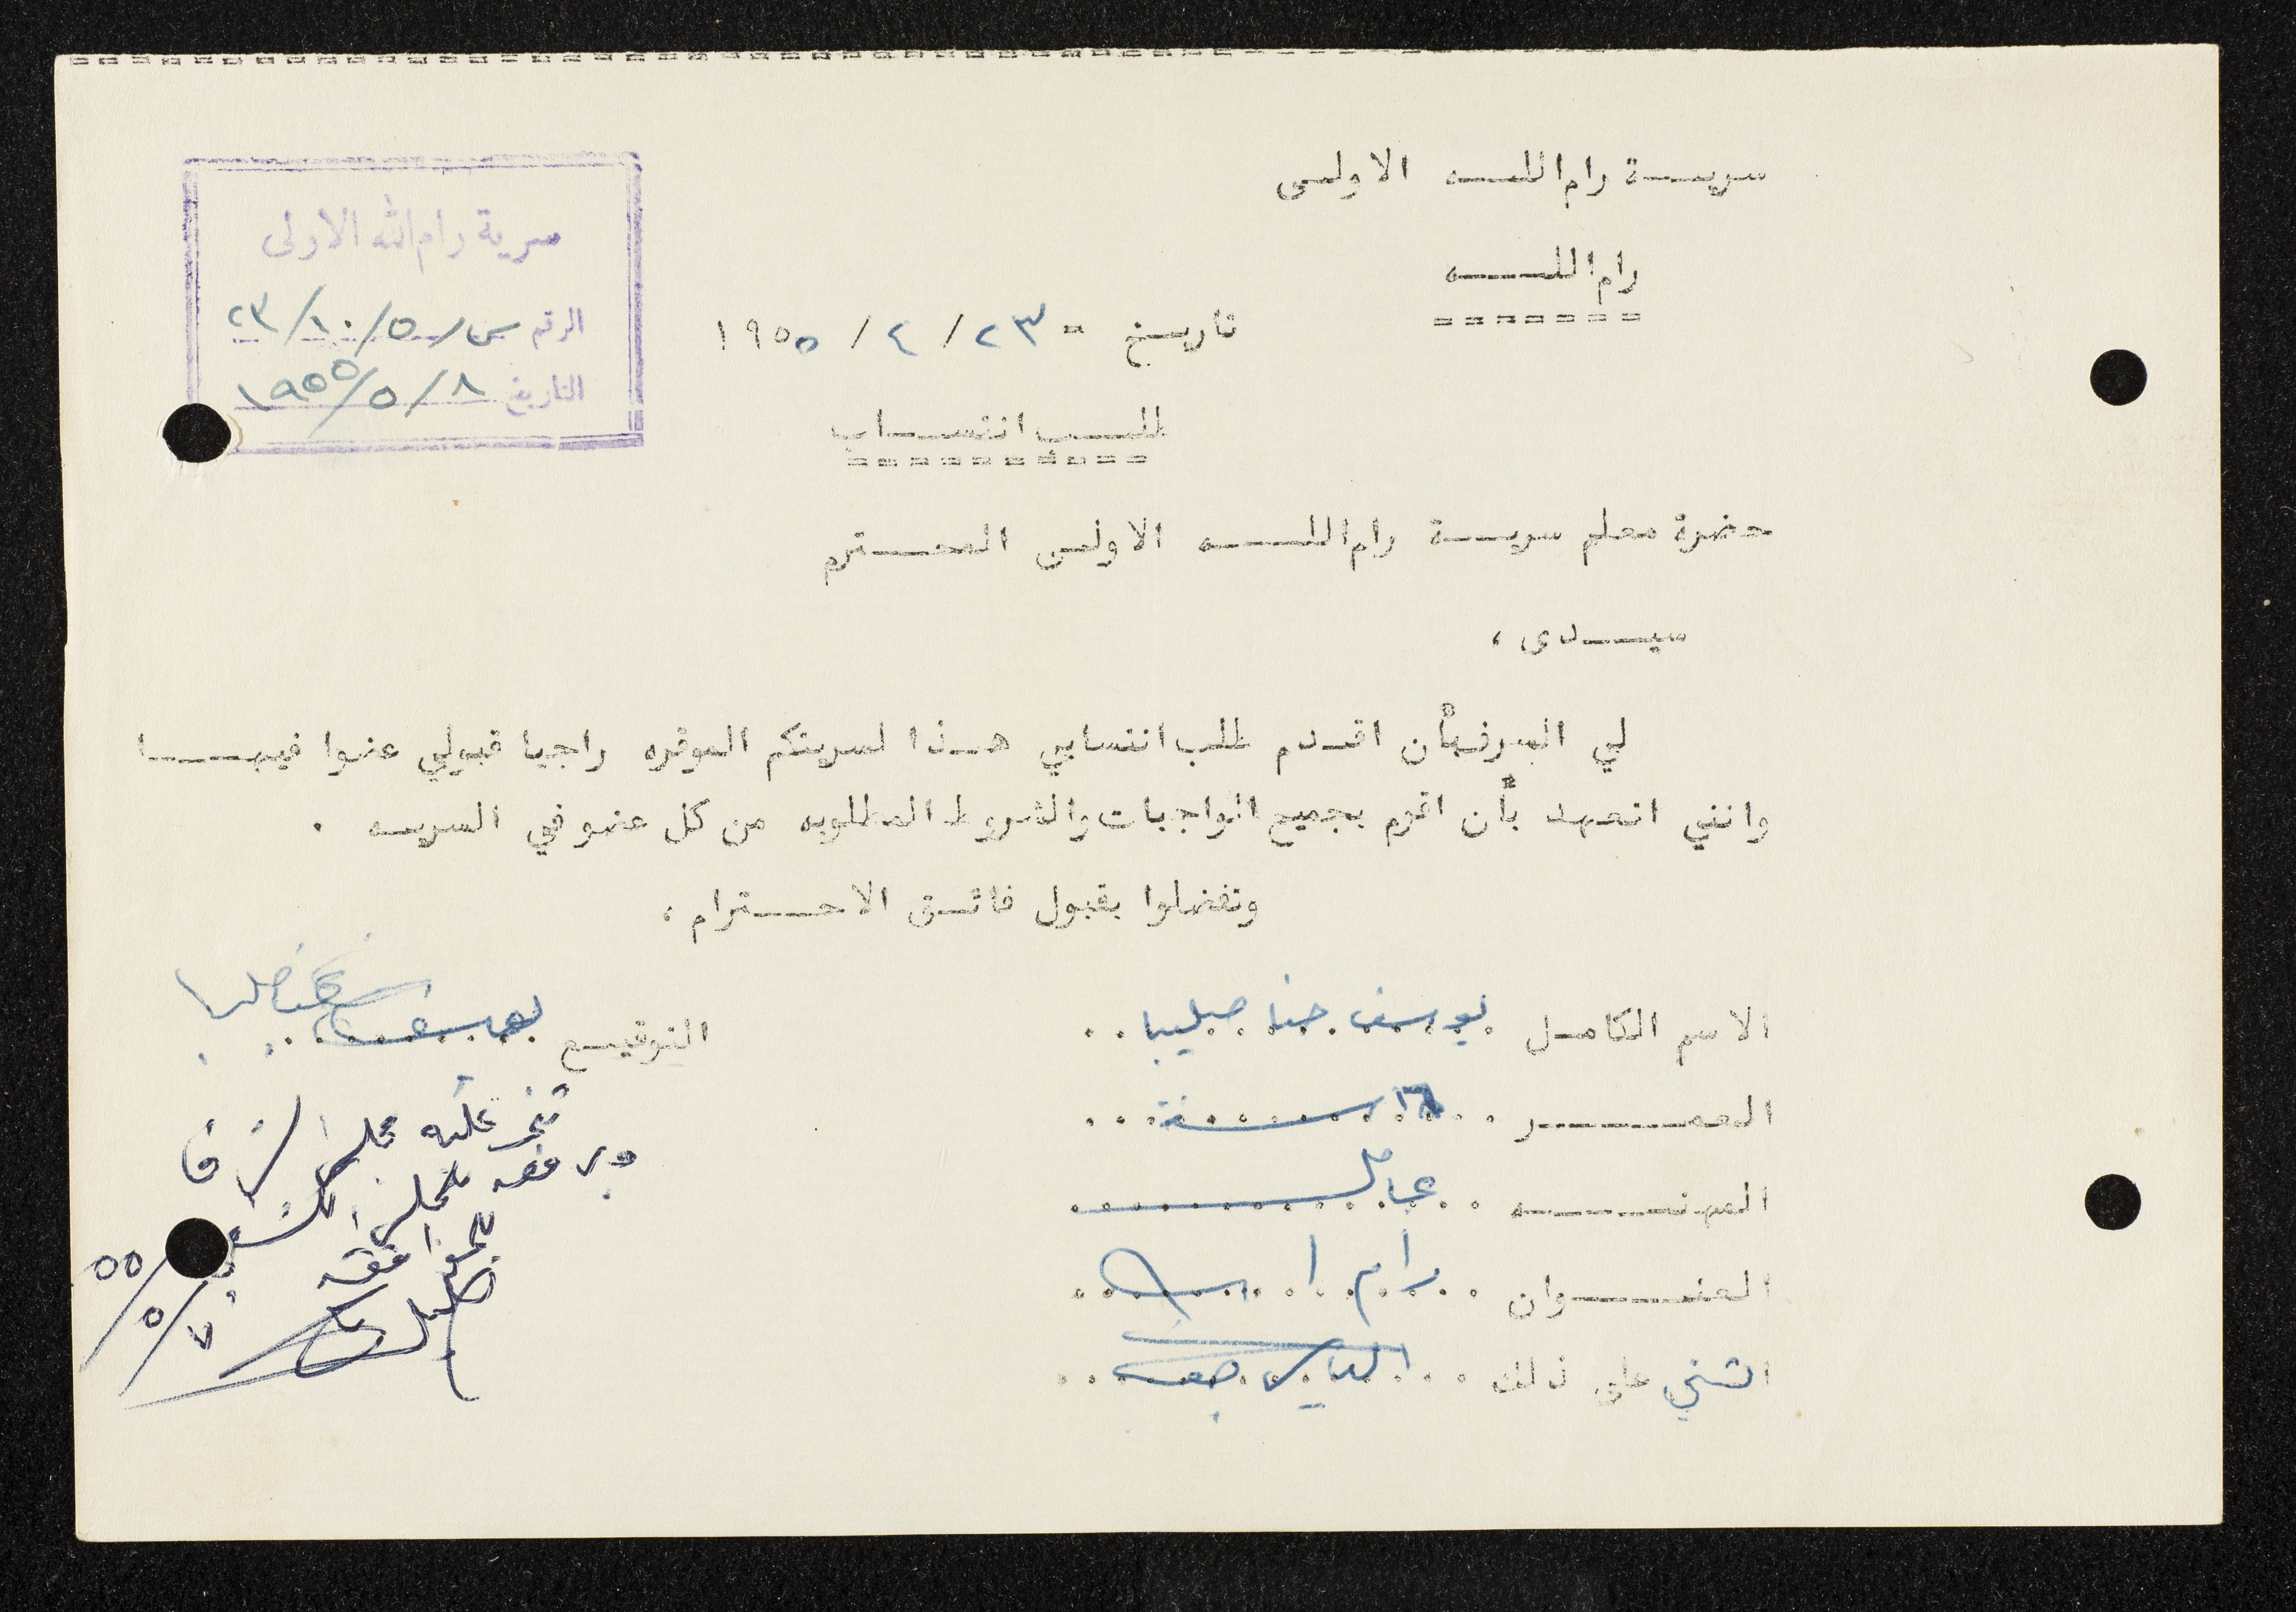 سرية رام الله الاولى
رام الله
سرية رام الله الاولى
الرقم س/٥/١٠/٢٣
التاريخ ٨/٥/١٩٥٥
تاريخ - ٢٣/٤/١٩٥٥
طلب انتساب
حضرة معلم سرية رام الله الاولى المحترم
سيدى ،
لي الشرف بأن اقدم طلب انتسابي هذا لسريتكم الموقره راجيا قبولي عضوا فيها
وانني اتعهد بأن اقوم بجميع الواجبات والشروط المطلوبه من كل عضو في السريه .
وتفضلوا بقبول فائق الاحترام ،
الاسم الكامل يوسف حنا صليبا
التوقيع يوسف حنا صليبا
العمر ١٦ سنة
المهنه عامل
العنوان رام الله
اثني على ذلك الياس
عليه مجلس
للموافقه
٧/٥/٥٥